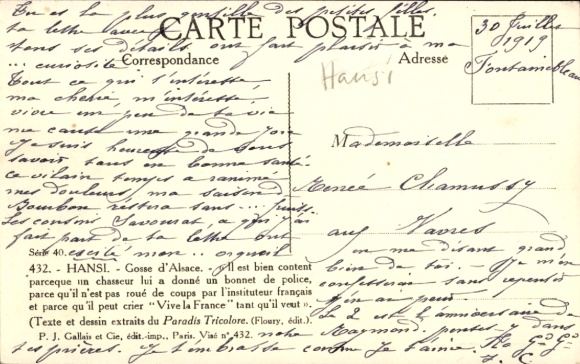 Tu es la plus gentille des petites filles.
ta lettre avec
tous ses détails ont fait plaisir à ma
... curiosité
CARTE POSTALE
Correspondance
Adresse
30 Juillet
1919
Fontainebleau
Hansi
Tout ce qui t'intéresse,
ma chérie, m'intéresse,
vivre un peu de ta vie
me cause une grande joie
Je suis heureuse de vous
savoir tous en bonne santé
ce vilain temps a ranimé
mes douleurs, ma saison
Bourbon restera sans ... fruits.
Les cousins Savourat, a qui j'ai
fait part de ta lettre ont
excité mon orgueil
Mademoiselle
Renée Chamussy
aux Vavres
en me disant grand
bien de toi. Je m'en
confesserai sans repentir
Le 2 est l'anniversaire de
Raymond. pensez-y dans
notre
tes prières. Je t'embrasse comme je t'aime.
Série 40.
432. - HANSI. - Gosse d'Alsace. - Il est bien content
parceque un chasseur lui a donné un bonnet de police,
parce qu'il n'est pas roué de coups par l'instituteur français
et parce qu'il peut crier "Vive la France" tant qu'il veut ».
(Texte et dessin extraits du Paradis Tricolore. (Floury, édit.).
P. J. Gallais et Cie, édit.-imp., Paris. Visé n° 432.